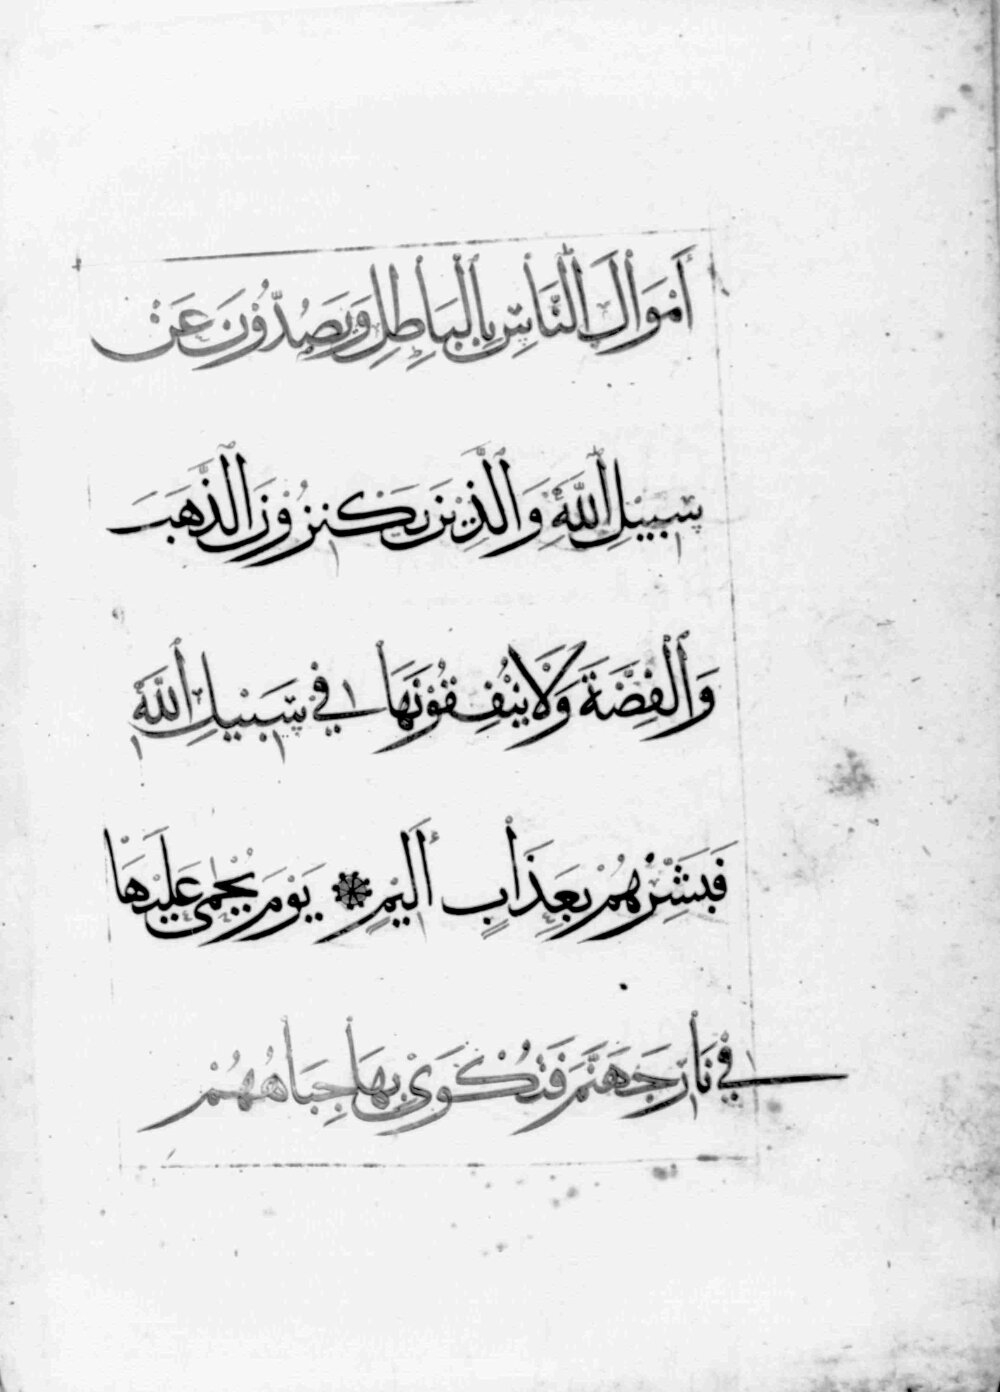 أَمْوَالَ النَّاسِ بِالْبَاطِلِ وَيَصُدُّوْنَ عَنْ
سَبِيْلِ اللَّهِ وَالَّذِيْنَ يَكْنِزُوْنَ الذَّهَبَ
وَالْفِضَّةَ وَلَا يُنْفِقُوْنَهَا فِي سَبِيْلِ اللَّهِ
فَبَشِّرْهُمْ بِعَذَابٍ أَلِيْمٍ ۞ يَوْمَ يُحْمَى عَلَيْهَا
فِي نَارِ جَهَنَّمَ فَتُكْوَى بِهَا جِبَاهُهُمْ